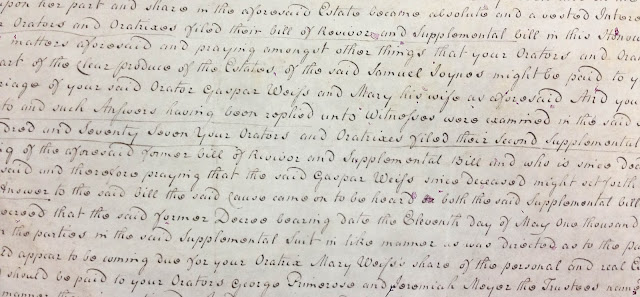 upon her part and share in the aforesaid Estate became absolute and a vested Inter
Orators and Oratrixes filed their bill of Revivor and Supplemental Bill in this Honou
matters aforesaid and praying amongst other things that your Orators and Orat
art of the clear produce of the Estates of the said Samuel Joynes might be paid to y
riage of your said Orator Gaspar Weiss and Mary his wife as aforesaid And you
to and such Answers having been replied unto Witnesses were examined in the said
dred and Seventy Seven Your Orators and Oratrixes filed their second Supplemental
ng of the aforesaid former bill of Revivor and Supplemental Bill and who is since dec
said and therefore praying that the said Gaspar Weiss since deceased might set forth
Answer to the said Bill the said Cause came on to be heard on both the said Supplemental bill
ecreed that the said former Decree bearing date the Eleventh day of May One thousand
n the parties in the said Supplemental Suit in like manner as was directed as to the pa
ld appear to be coming due for your Oratrix Mary Weiss's share of the personal and real E
should be paid to your Orators George Primerose and Jeremiah Meyer the Trustees name
manner the